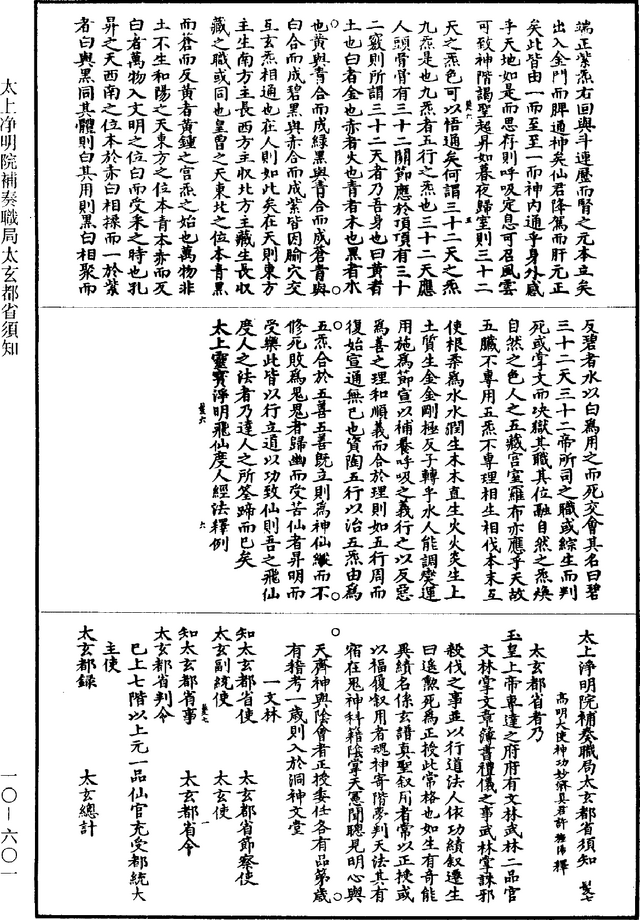 端正紫炁右回與斗連歷而腎之元本立矣
出入金門而脾通神矣仙君降駕而肝元正
矣此皆由一而至至一而神内通乎身外感
乎天地如是而思存則呼吸定息可召風雲
可致神階謁聖超昇如暮夜歸室則三十二
天之炁色可以悟通矣何謂三十二天之炁
九炁是也九炁者五行之炁也三十二天應
人頭骨骨有三十二關節應於頂頂有三十
二竅則所謂三十二天者乃吾身也曰黄者
土也白者金也赤者火也青者木也黑者水
也黄與青合而成綠黑與青合而成蒼青與
白合而成碧黑與赤合而成紫皆因腧穴交
互玄炁相通也在人則如此矣在天則東方
主生南方主長西方主收北方主藏生長收
藏之職或同也皇曾之天東北之位本青黑
而蒼而反黄者黄鐘之宫炁之始也萬物非
土不生和陽之天東方之位本青本赤而反
白者萬物入文明之位白而受采之時也孔
昇之天西南之位本於赤白相操而一於紫
者白與黑同其體則白其用則黑白相聚而
反碧者水以白為用之而死交會其名曰碧
三十二天三十二帝所司之職或綜生而判
死或掌文而決獄其職其位融自然之炁煥
自然之色人之五藏宫室羅布亦應乎天故
五臟不專用五炁不專理相生相伐本末互
使根柔為水水潤生木木直生火火炎生土
土質生金金剛極反子轉乎水人能調燮運
用施為節宣以補養呼吸之義行之以反惡
為善之理和順義而合於理則如五行周而
復始宣通無已也資陶五行以治五炁由為
五炁合於五善五善既立則為神仙纖而不
修死敗為鬼鬼者歸幽而受苦仙者昇明而
受樂此皆以行立道以功致仙則吾之飛仙
度人之法者乃達人之所筌蹄而已矣
太上靈寳淨明飛仙度人經法釋例
太上淨明院補奏職局太玄都省須知
高明大使神功妙濟真君許 釋
太玄都省者乃
玉皇上帝專達之府府有文林武林二品官
文林掌文章薄書禮儀之事武林掌誅邪
殺伐之事並以行道法人依功績叙遷生
曰遥勲死為正授此常格也如生有奇能
異績名係玄譜真聖叙用者常以正授或
以福復叙用者魂神寄階夢判天法其有
宿在鬼神科籍陰掌天憲聞聰見明心與
天齊神與陰會者正授委任各有品第歲
有稽考一歲則入於洞神文堂
一文林
知太玄都省使 太玄都省節察使
太玄副統使 太玄使
知太玄都省事 太玄都省令
太玄都省判令
已上七階以上元一品仙官充受都統大
主使
太玄都錄 太玄總計
太上净明院補奏職局太玄都省須知
一〇—六〇一